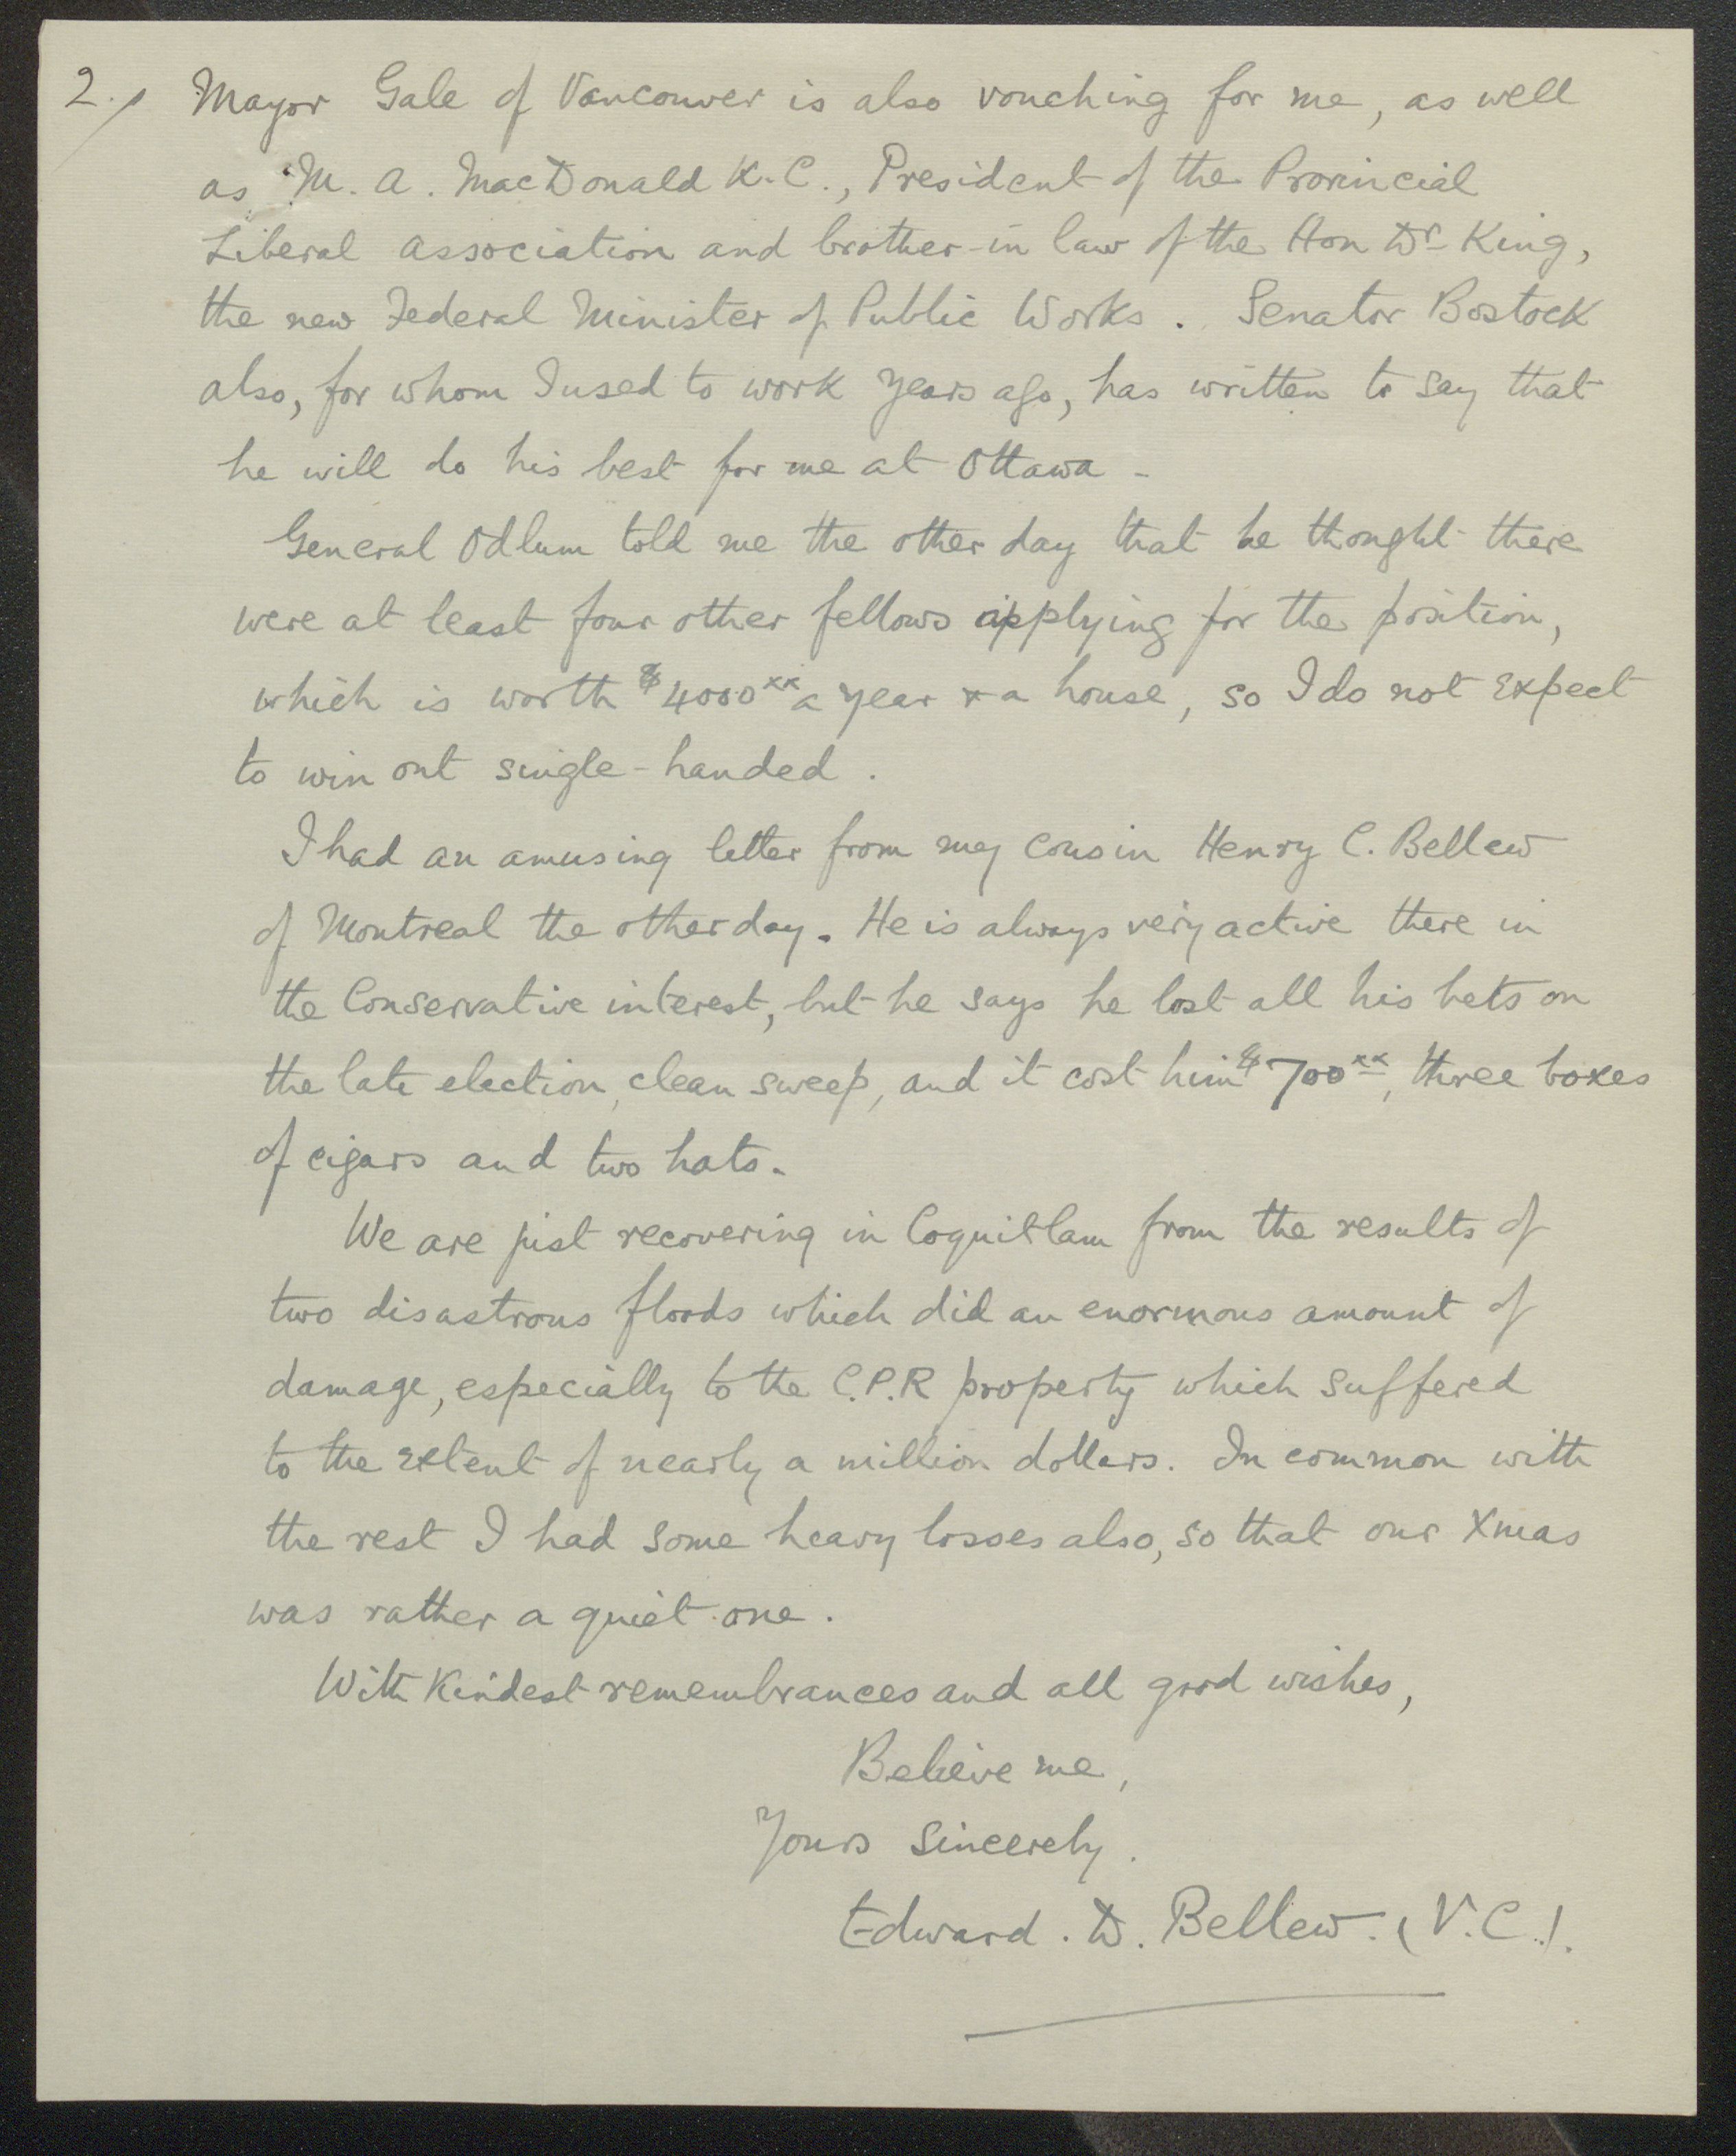 2.
Mayor Gale of Vancouver is also vouching for me, as well
as M. A. MacDonald K.C., President of the Provincial
Liberal association and brother-in law of the Hon Dr King,
the new Federal Minister of Public Works. Senator Bostock
also, for whom I used to work years ago, has written to say that
he will do his best for me at Ottawa -
General Odlum told me the other day that he thought there
were at least four other fellows applying for the position,
which is worth $4000xx a year & a house, so I do not expect
to win out single-handed.
I had an amusing letter from my cousin Henry C. Bellew
of Montreal the other day. He is always very active there in
the Conservative interest, but he says he lost all his bets on
the late election, clean sweep, and it cost him $700xx, three boxes
of cigars and two hats.
We are just recovering in Coquitlam from the results of
two disastrous floods which did an enormous amount of
damage, especially to the C.P.R property which suffered
to the extent of nearly a million dollars. In common with
the rest I had some heavy losses also, so that our Xmas
was rather a quiet one.
With kindest remembrances and all good wishes,
Believe me,
Yours sincerely.
Edward. D. Bellew. (V.C.).